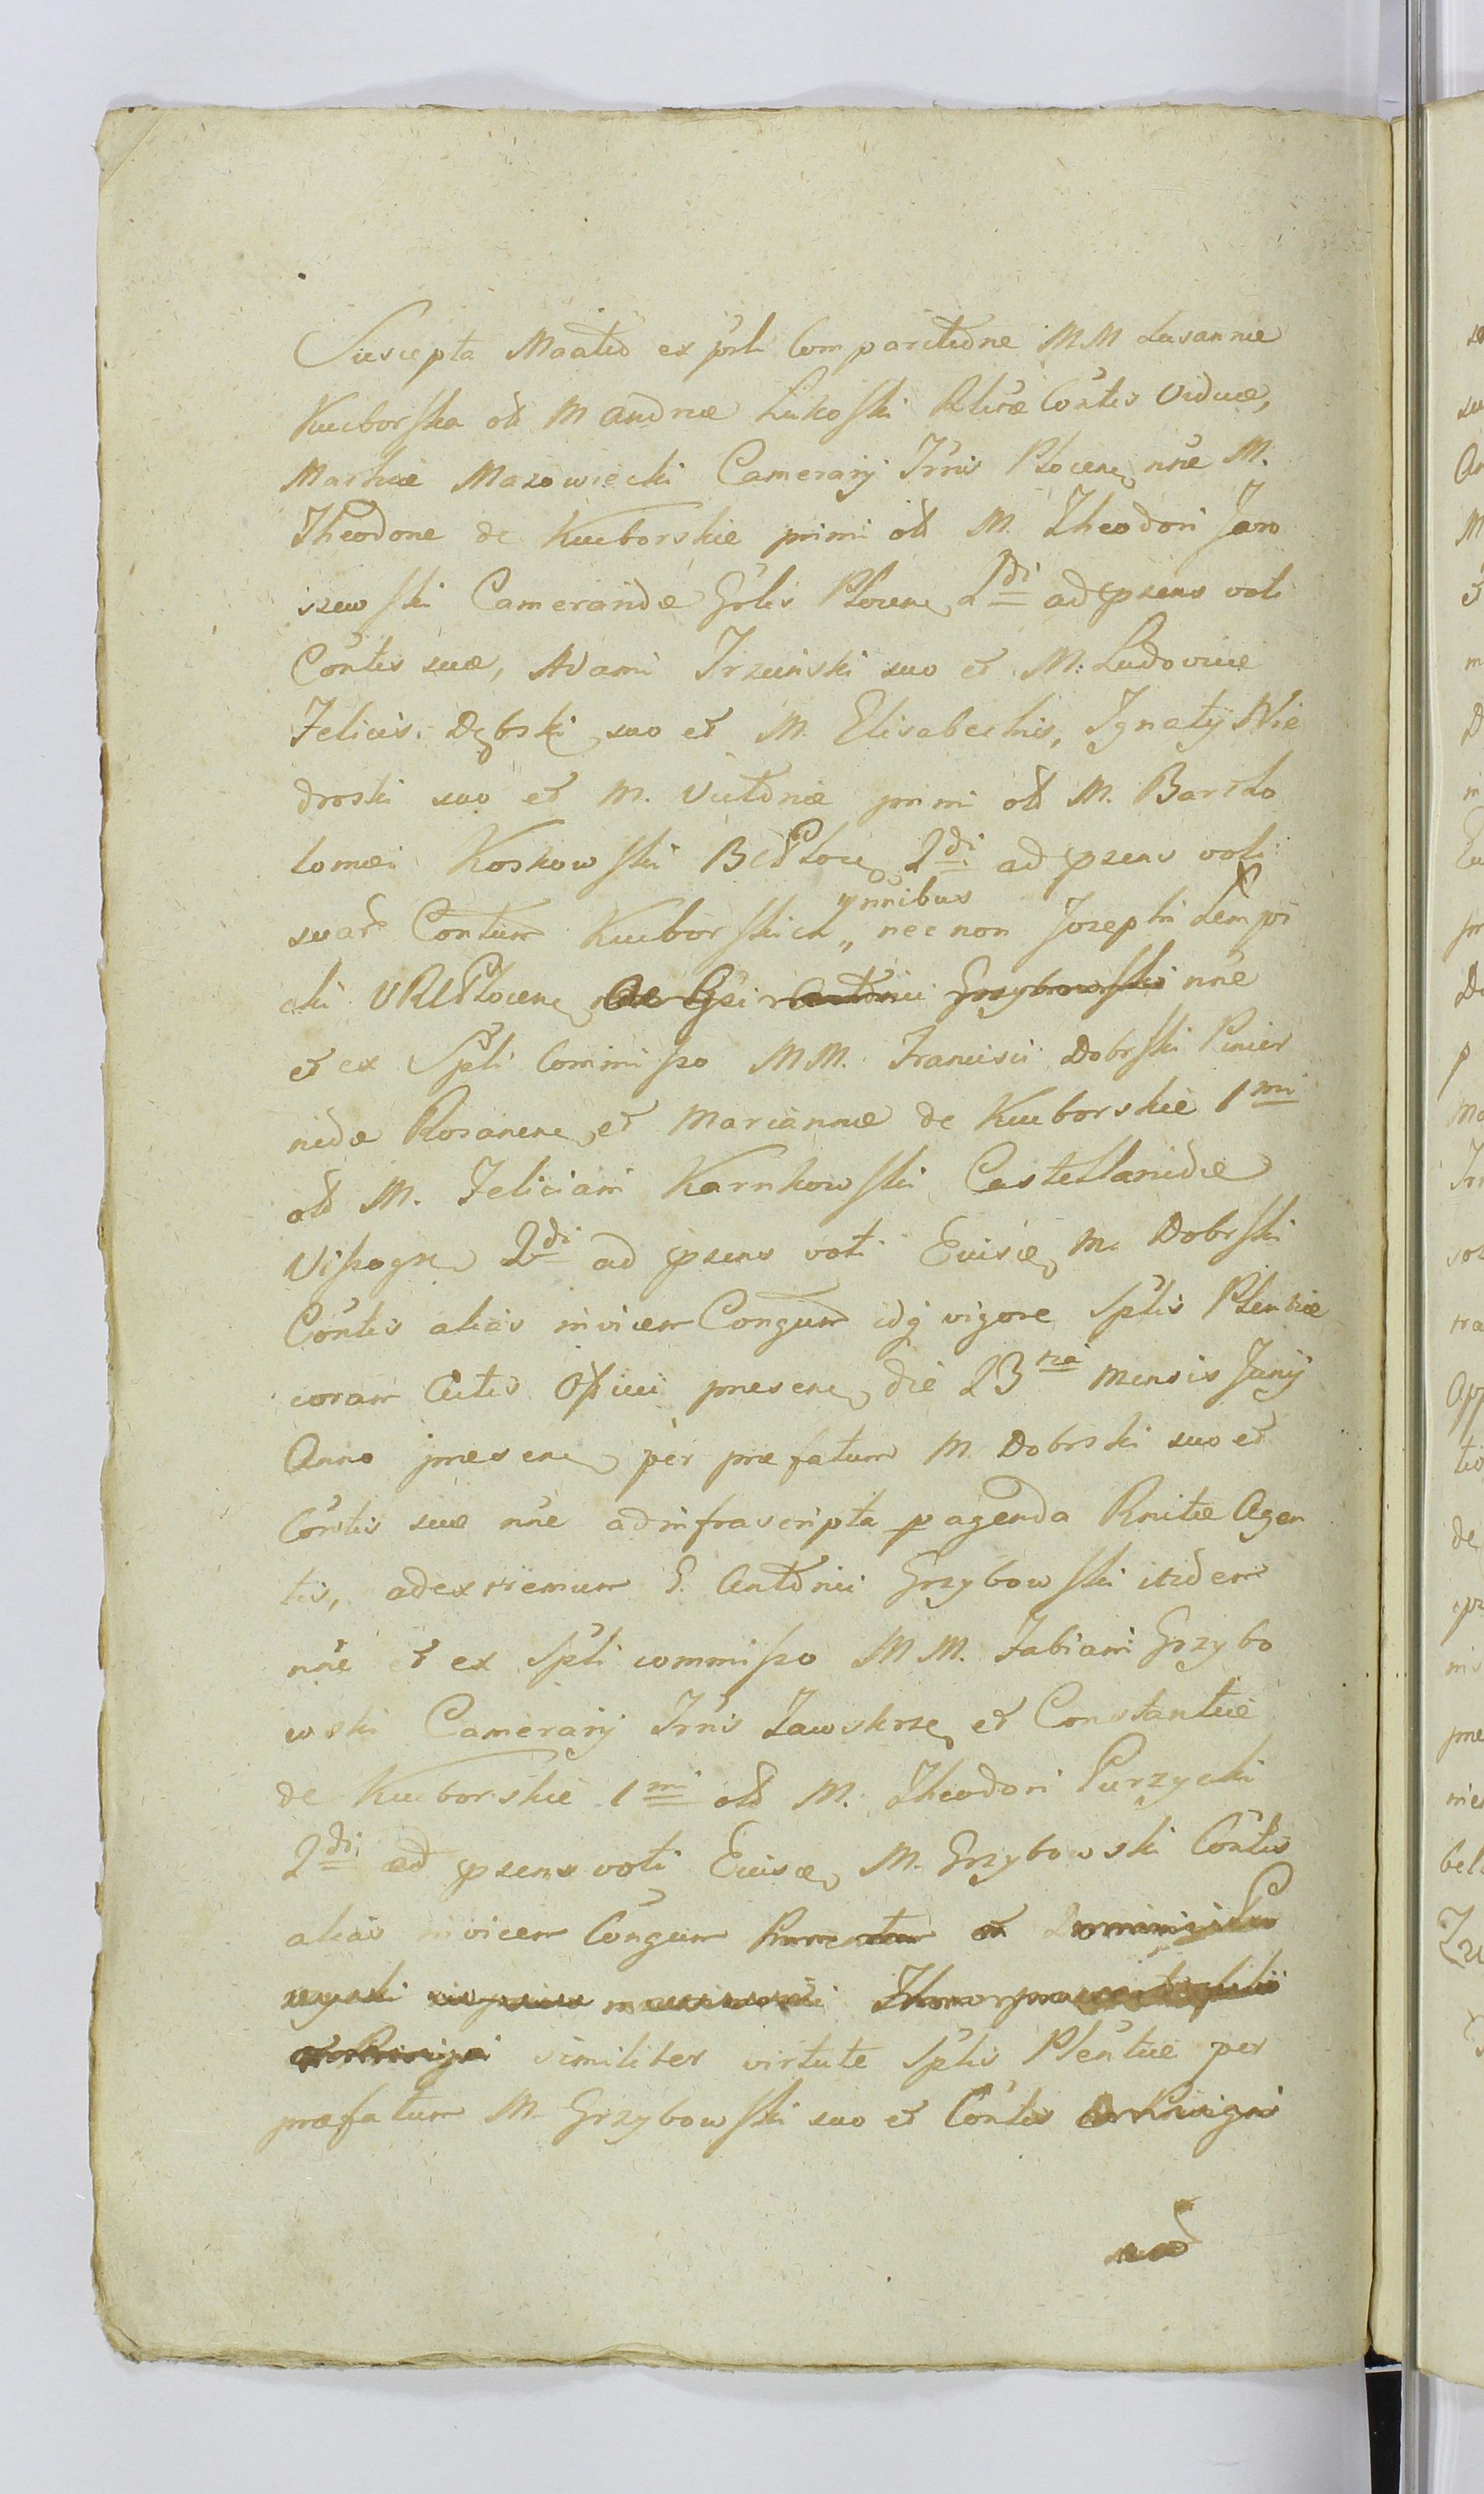 Suscepta Maatio ex prti Comparitione MM Susannæ
Kuczborska ol. M Andreæ Lukoski Relictæ Contis Viduæ,
Mathiæ Mazowiecki Camerarij Trnis Plocen. nne M.
Theodoræ de Kuczborskie primi ol. M. Theodori Jaro
szewski Cameraridæ Grlis Plocen. 2di ad præsens voti
Contis suæ, Adami Trzcinski suo et M. Ludovicæ
Felicis Dębski suo et M. Elisabethis, Ignatij Nie
droski suo et M. Victoriæ primi ol. M. Bartho
lomæi Koskowski B Ploc. 2di ad præsens voti
suar. Contum Kuczborskich „ nnibus nec non Josephi Lempi
cki VR Plocen. Grzybowski nne
et ex Spli Commisso MM. Francisci Dobrski Pincer
nidæ Rosanen. et Mariannæ de Kuczborskie 1mi
ol. M. Feliciani Karnkowski Castellanidæ
Vissogr. 2di ad præsens voti Eiusd. M. Dobrski
Contis alias invicem Congum idq vigore Splis Plentiæ
coram Actis Officii præsen. die 23tia mensis Junij
Anno præsen. per præfatum M. Dobrski suo et
Contis suæ nne ad infrascripta pagenda Rnitæ Agen
tis, ad extremum G. Antonii Grzybowski itidem
nne et ex Spli commisso MM. Fabiani Grzybo
wski Camerarij Trnis Zawskrze. et Constantiæ
de Kuczborskie 1mi ol. M. Theodori Purzycki
2di ad præsens voti Eiusd. M. Grzybowski Contis
alias invicem Congum
similiter virtute Splis Plentiæ per
præfatum M. Grzybowski suo et Contis